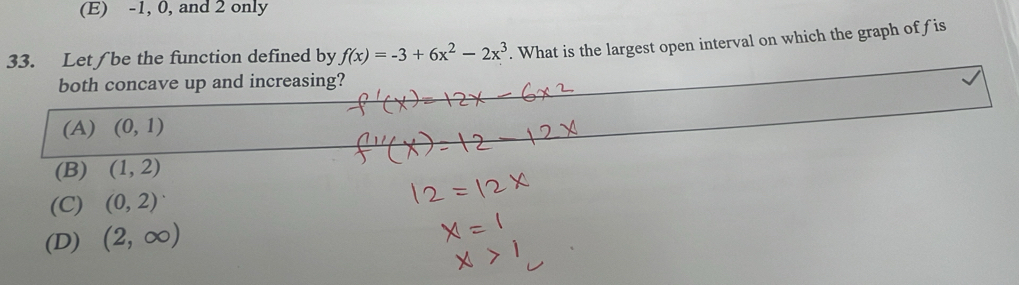 (E) -1, 0, and 2 only
33. Let f be the function defined by f(x) = -3 + 6x² − 2x³. What is the largest open interval on which the graph of f is
both concave up and increasing?
f'(x)=12x − 6x2
(A) (0, 1)
f''(x)=12−12x
(B) (1, 2)
12 = 12x
(C) (0, 2)
x = 1
(D) (2, ∞)
x > 1